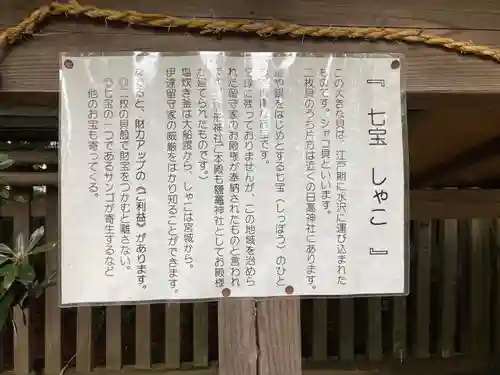 『 七宝 しゃこ 』
この大きな貝は、江戸期に水沢に運び込まれた
ものです。シャコ貝といいます。
二枚貝のうち片方は近くの日高神社にあります。
をはじめとする七宝（しっぽう）のひと
です。
に残っておりませんが、この地域を治めら
れた留守家のお殿様が奉納されたものと言われ
神社(ご本殿も鹽竈神社としてお殿様
が建てられたものです。)
塩炊き釜は大船渡から、しゃこは宮城から。
伊達留守家の威厳をはかり知ることができます。
ると、財力アップの《ご利益》があります。
①二段の貝殻で財宝をつかむと離さない。
②七宝の一つであるサンゴが寄生するなど
他のお宝も寄ってくる。